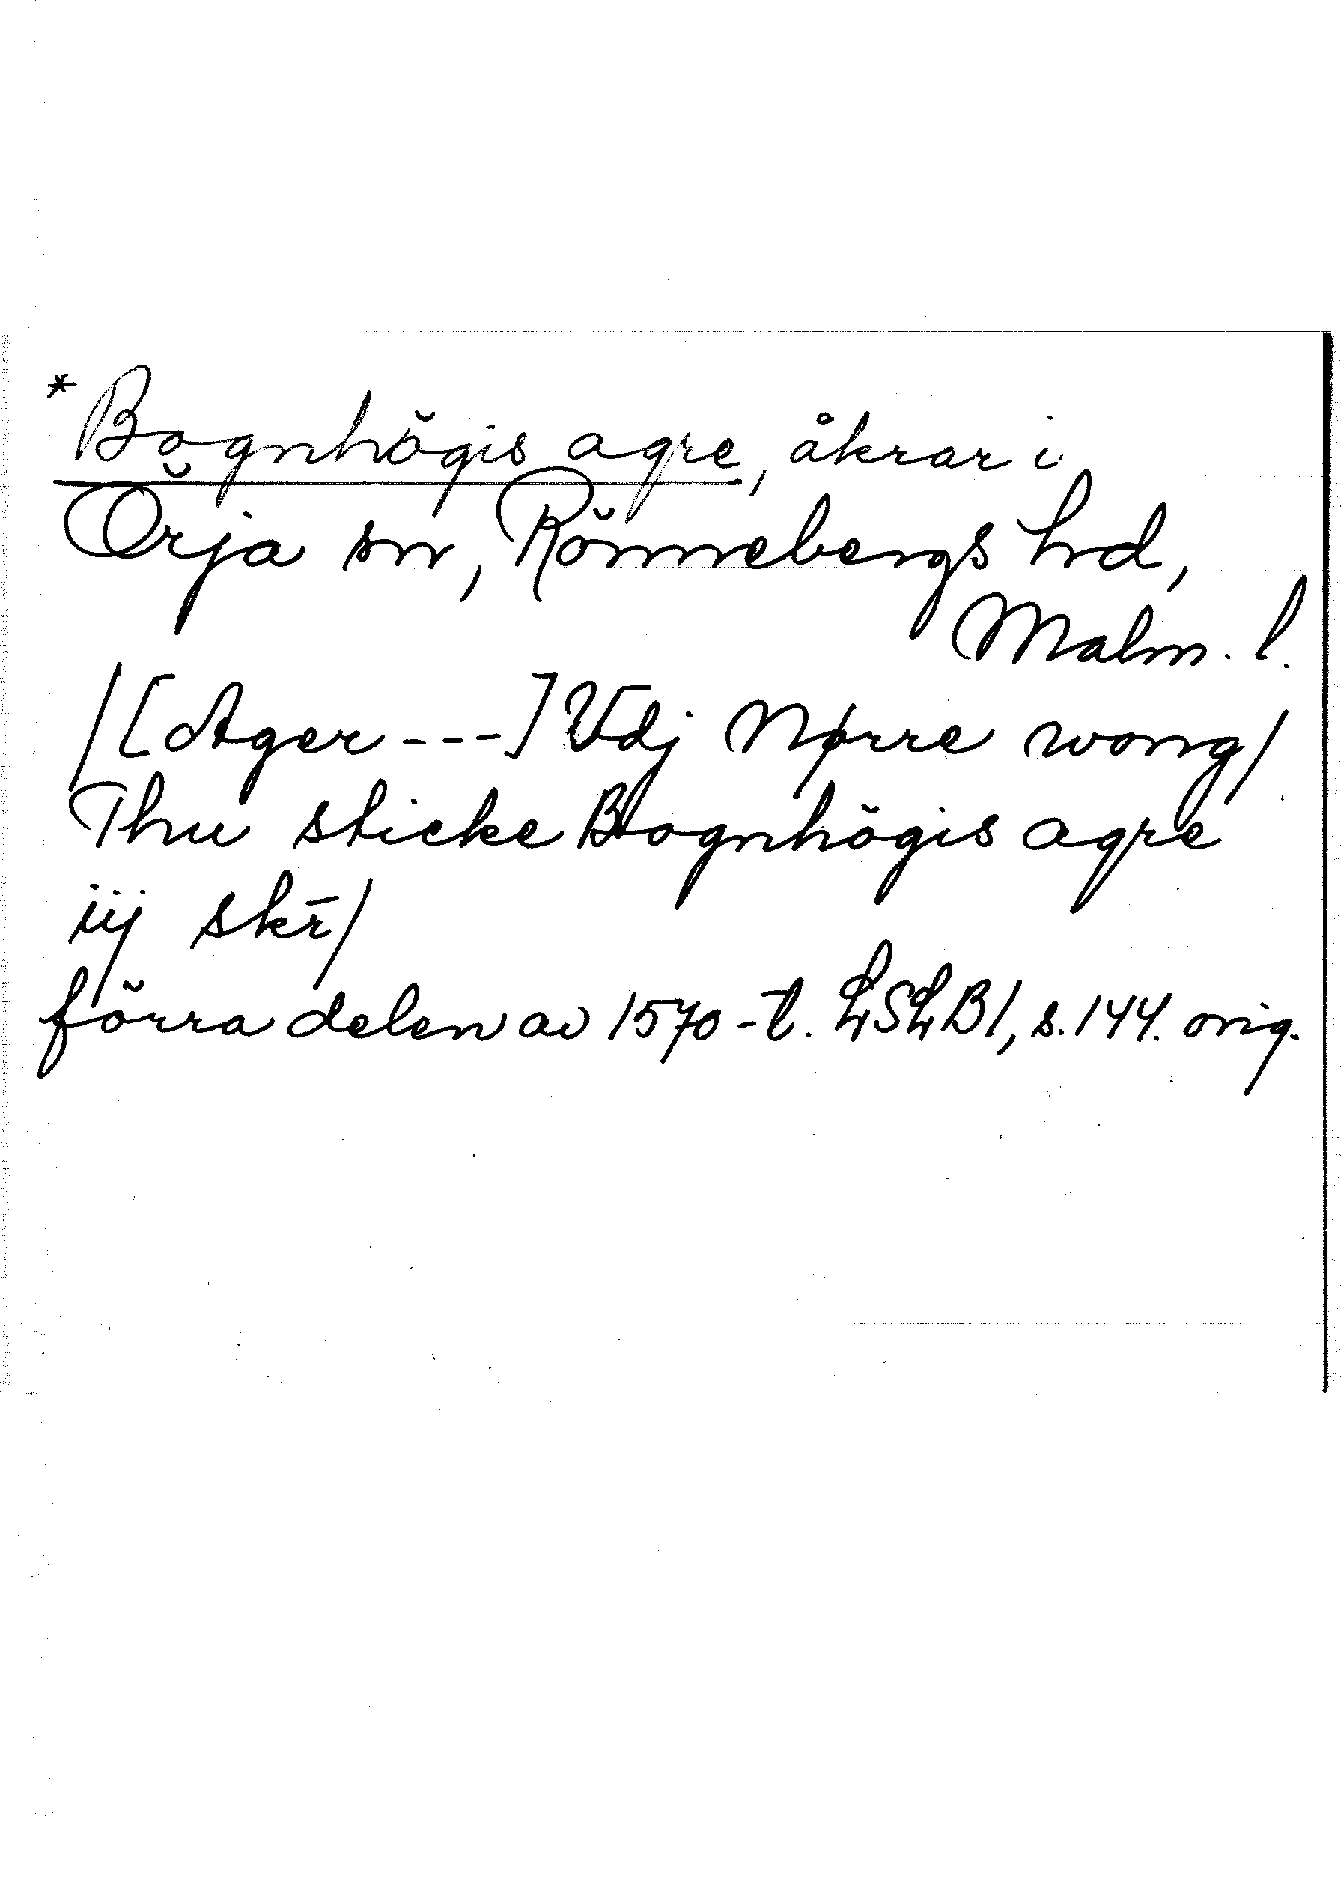 *Bognhögis agre, åkrar i
Örja sn, Rönnebergs hd,
Malm. l.
/[Ager---] Vdj Nørre wong/
Thu sticke Bognhögis agre
iij skr̄/
förra delen av 1570-t. LSLB1, s. 144. orig.